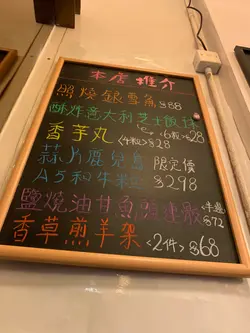 本店推介
照燒銀雪魚 $88
酥炸意大利芝士飯球
<6粒> $28
香芋丸 <件6粒> $28
蒜片鹿兒島 限定價
A5和牛米粒 $298
鹽燒油甘魚頭連骹 <半邊> $72
香草煎羊架 <2件> $68